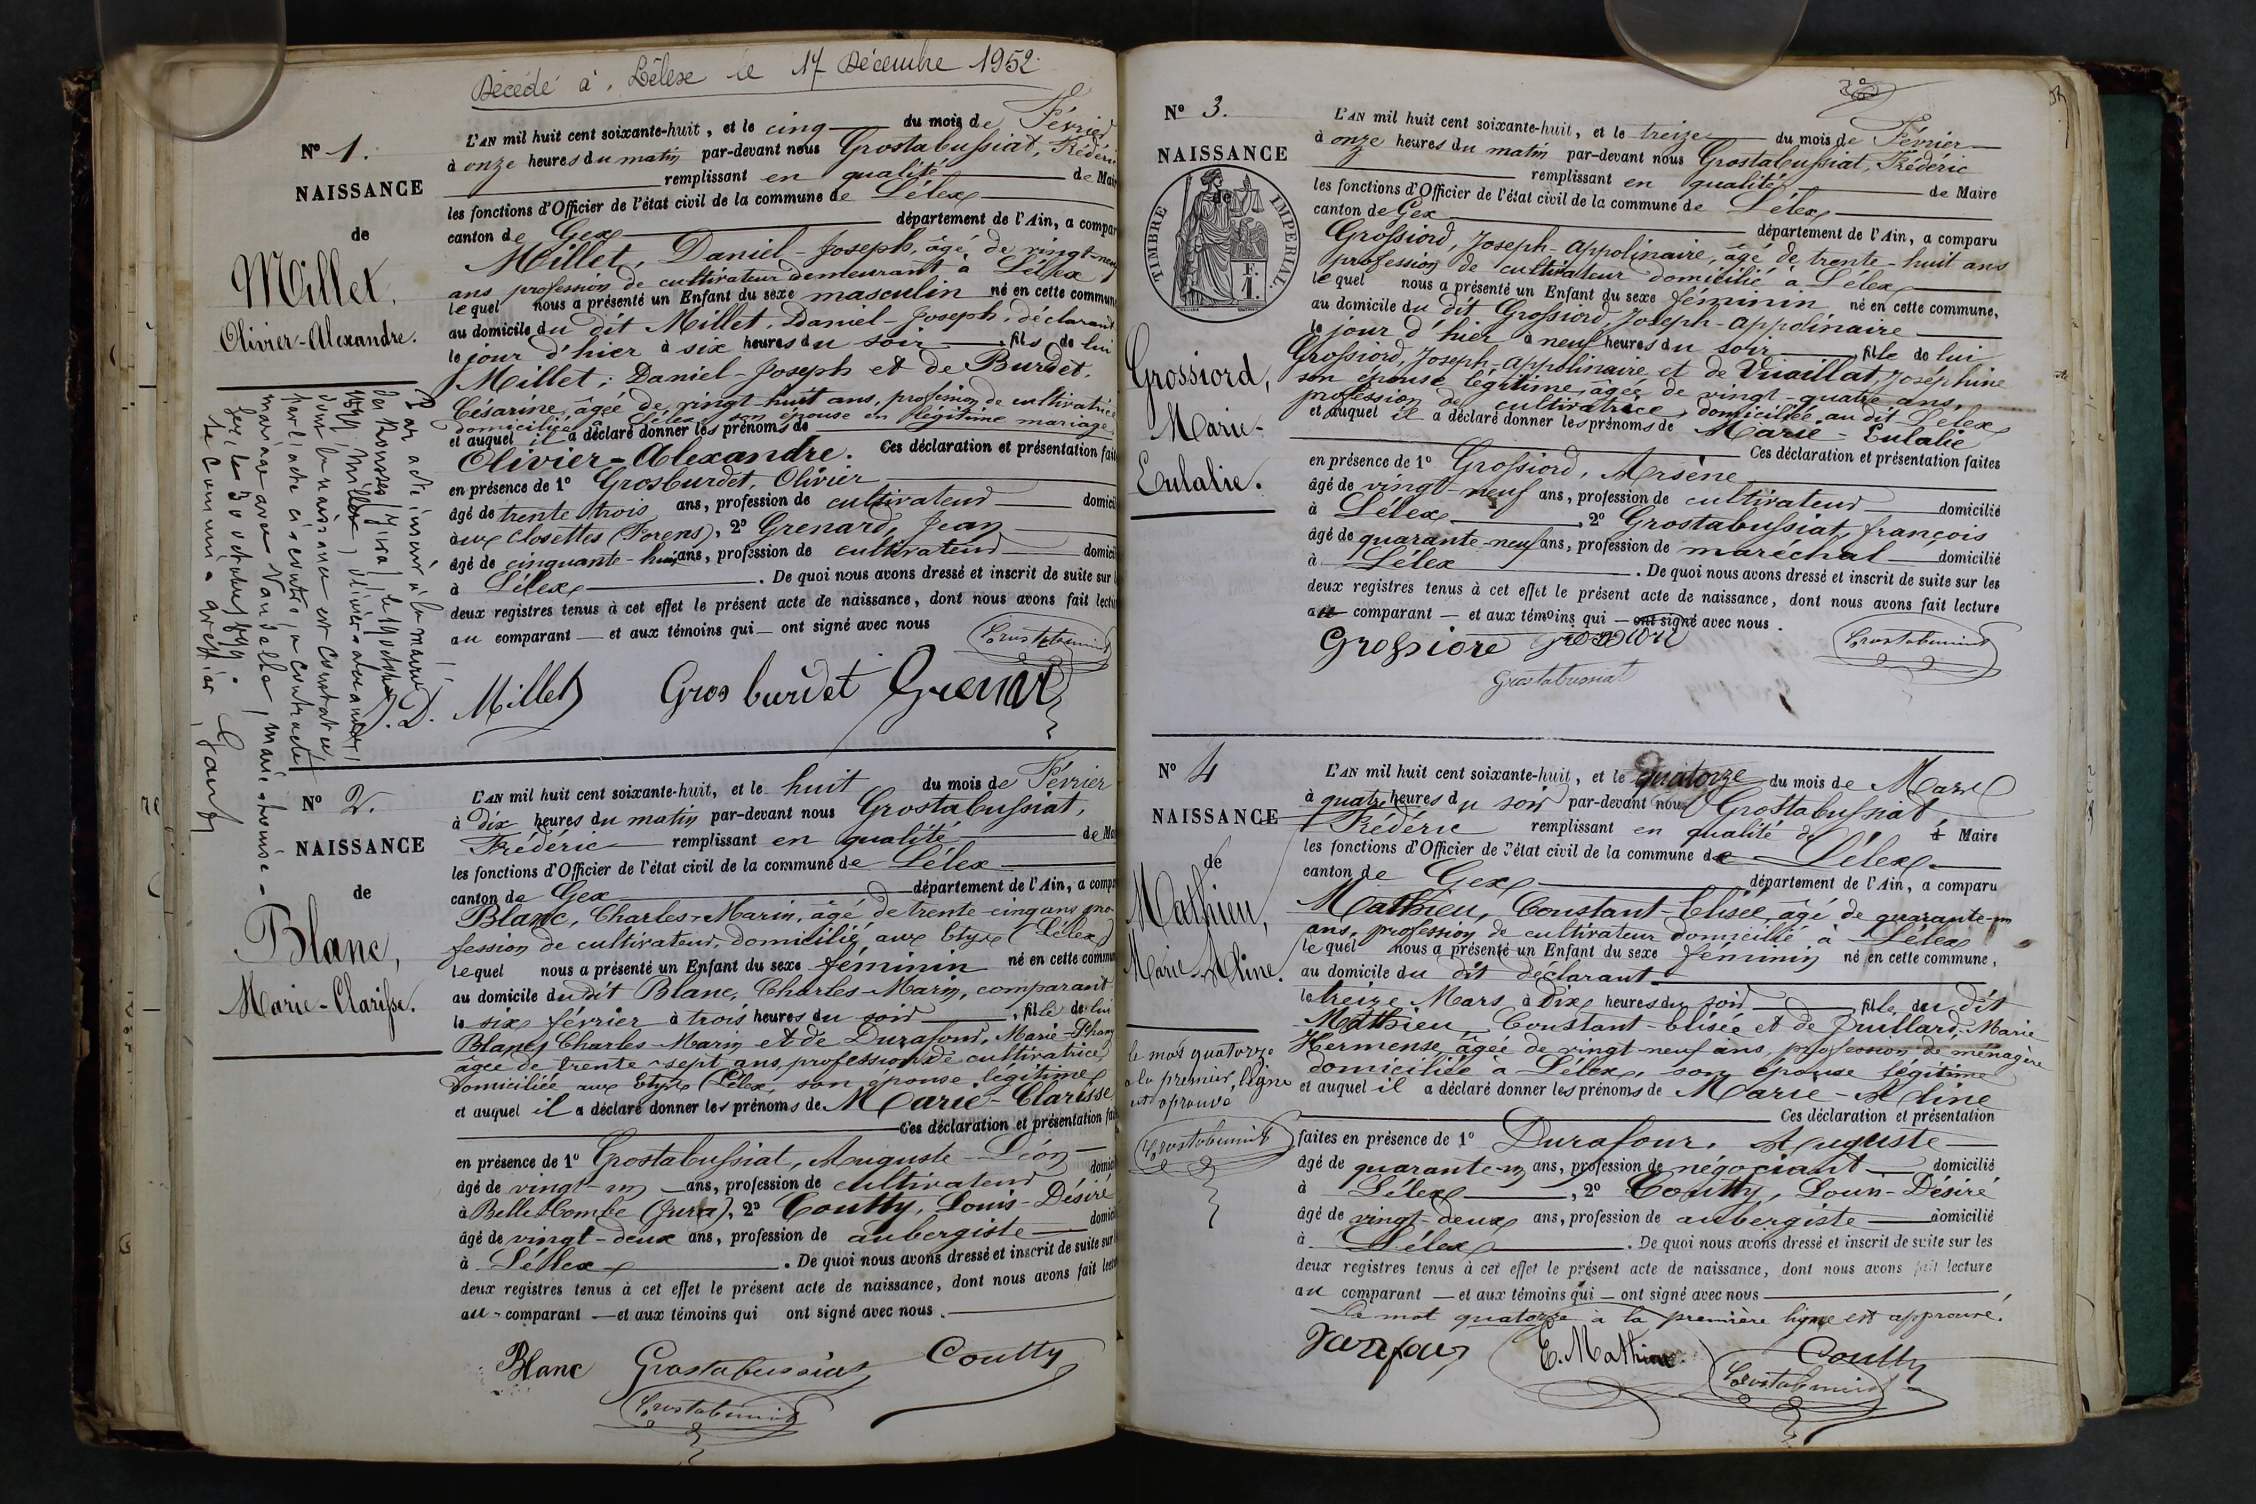 Décédé à Lélex le 17 Décembre 1952
N° 1.
NAISSANCE
de
Millet,
Olivier-Alexandre.
L'AN mil huit cent soixante-huit, et le cinq du mois de Février
à onze heures du matin par-devant nous Grostabussiat, Frédéric
remplissant en qualité de Mai
les fonctions d'Officier de l'état civil de la commune de Lélex
canton de Gex département de l'Ain, a compar
Millet, Daniel-Joseph, âgé de vingt-neuf
ans profession de cultivateur demeurant à Lélex
lequel nous a présenté un Enfant du sexe masculin né en cette commune
au domicile du dit Millet, Daniel-Joseph, déclarant
le jour d'hier à six heures du soir, fils de lui
Millet, Daniel-Joseph et de Burdet,
Césarine, âgée de vingt-huit ans, profession de cultivatrice
domiciliée à Lélex son épouse en légitime mariage
et auquel il a déclaré donner les prénoms de
Olivier-Alexandre. Ces déclaration et présentation fait
en présence de 1° Grosburdet, Olivier
âgé de trente trois ans, profession de cultivateur domicil
aux Closettes (Forens), 2° Grenard, Jean
âgé de cinquante-huit ans, profession de cultivateur domicil
à Lélex. De quoi nous avons dressé et inscrit de suite sur l
deux registres tenus à cet effet le présent acte de naissance, dont nous avons fait lectu
au comparant — et aux témoins qui — ont signé avec nous
Grostabussiat
Millet Grosburdet Grenard
Par acte inséré à la mairie
des Rousses (Jura) le 19 octobre
Millet, olivier-alexandre,
dont la naissance est constatée
par l'acte ci-contre, a contracté
mariage avec Vandelle, marie-louise-
Gex, le 30 octobre
le commis-greffier,
J. D.
N° 2.
NAISSANCE
de
Blanc,
Marie-Clarisse.
L'AN mil huit cent soixante-huit, et le huit du mois de Février
à dix heures du matin par-devant nous Grostabussiat,
Frédéric remplissant en qualité de Ma
les fonctions d'Officier de l'état civil de la commune de Lélex
canton de Gex département de l'Ain, a compa
Blanc, Charles-Marin, âgé de trente-cinq ans pro-
fession de cultivateur, domicilié aux Etyes (Lélex)
lequel nous a présenté un Enfant du sexe féminin né en cette commun
au domicile du dit Blanc, Charles-Marin, comparant
le six février à trois heures du soir, fille de lui
Blanc, Charles-Marin et de Durafour, Marie-
âgée de trente-sept ans, profession de cultivatrice
domiciliée aux Etyes (Lélex son épouse légitime
et auquel il a déclaré donner les prénoms de Marie-Clarisse
Ces déclaration et présentation fai
en présence de 1° Grostabussiat, Auguste-Léon
âgé de vingt-un ans, profession de cultivateur domici
à Bellecombe (Jura), 2° Coutty, Louis-Désiré
âgé de vingt-deux ans, profession de aubergiste domici
à Lélex. De quoi nous avons dressé et inscrit de suite sur
deux registres tenus à cet effet le présent acte de naissance, dont nous avons fait lectu
au comparant — et aux témoins qui ont signé avec nous.
Blanc Grostabussiat Coutty
Grostabussiat
N° 3.
NAISSANCE
de
TIMBRE IMPERIAL.
F. I.
Grossiord,
Marie-
Eulalie.
L'AN mil huit cent soixante-huit, et le treize du mois de Février
à onze heures du matin par-devant nous Grostabussiat, Frédéric
remplissant en qualité de Maire
les fonctions d'Officier de l'état civil de la commune de Lélex
canton de Gex département de l'Ain, a comparu
Grossiord, Joseph-Appolinaire, âgé de trente-huit ans
profession de cultivateur domicilié à Lélex
lequel nous a présenté un Enfant du sexe féminin né en cette commune,
au domicile du dit Grossiord, Joseph-Appolinaire
le jour d'hier à neuf heures du soir, fille de lui
Grossiord, Joseph-Appolinaire et de Vuaillat, Joséphine
son épouse légitime âgée de vingt-quatre ans,
profession de cultivatrice, domiciliée au dit Lélex
et auquel il a déclaré donner les prénoms de Marie-Eulalie
Ces déclaration et présentation faites
en présence de 1° Grossiord, Arsène
âgé de vingt-neuf ans, profession de cultivateur domicilié
à Lélex, 2° Grostabussiat, françois
âgé de quarante-neuf ans, profession de maréchal domicilié
à Lélex. De quoi nous avons dressé et inscrit de suite sur les
deux registres tenus à cet effet le présent acte de naissance, dont nous avons fait lecture
au comparant — et aux témoins qui — ont signé avec nous.
Grossiord Grossiord
Grostabussiat
Grostabussiat
N° 4
NAISSANCE
de
Mathieu,
Marie-Aline.
L'AN mil huit cent soixante-huit, et le quatorze du mois de Mars
à quatre heures du soir par-devant nous Grostabussiat,
Frédéric remplissant en qualité de Maire
les fonctions d'Officier de l'état civil de la commune de Lélex
canton de Gex département de l'Ain, a comparu
Mathieu, Constant-Elisée, âgé de quarante-un
ans, profession de cultivateur domicilié à Lélex
lequel nous a présenté un Enfant du sexe féminin né en cette commune,
au domicile du dit déclarant.
le treize Mars à dix heures du soir, fille du dit
Mathieu, Constant-Elisée et de Juillard, Marie
Hermense, âgée de vingt-neuf ans, profession de ménagère
domiciliée à Lélex, son épouse légitime
et auquel il a déclaré donner les prénoms de Marie-Aline
Ces déclaration et présentation
faites en présence de 1° Durafour, Auguste
âgé de quarante-un ans, profession de négociant domicilié
à Lélex, 2° Coutty, Louis-Désiré
âgé de vingt-deux ans, profession de aubergiste domicilié
à Lélex. De quoi nous avons dressé et inscrit de suite sur les
deux registres tenus à cet effet le présent acte de naissance, dont nous avons fait lecture
au comparant — et aux témoins qui — ont signé avec nous
Le mot quatorze à la première ligne est approuvé.
Durafour E. Mathieu Coutty
Grostabussiat
le mot quatorze
a la premier ligne
est aprouvé
Grostabussiat